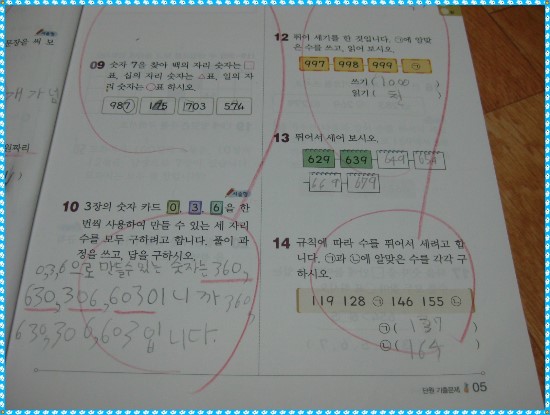 문장을 써 보
09 숫자 7을 찾아 백의 자리 숫자는 □
표, 십의 자리 숫자는 △표, 일의 자
리 숫자는 ○표 하시오.
987 175 703 574
서술형
10 3장의 숫자 카드 0, 3, 6을 한
번씩 사용하여 만들 수 있는 세 자리
수를 모두 구하려고 합니다. 풀이 과
정을 쓰고, 답을 구하시오.
0,3,6으로 만들수있는 숫자는 360,
630,306,603이니까 360,
630,306,603입니다.
12 뛰어 세기를 한 것입니다. ㉠에 알맞
은 수를 쓰고, 읽어 보시오.
997 998 999 ㉠
쓰기 ( 1000 )
읽기 ( 천 )
13 뛰어서 세어 보시오.
629 639 649 659
669 679
14 규칙에 따라 수를 뛰어서 세려고 합
니다. ㉠과 ㉡에 알맞은 수를 각각 구
하시오.
119 128 ㉠ 146 155 ㉡
㉠ ( 137 )
㉡ ( 164 )
단원 기출문제 05